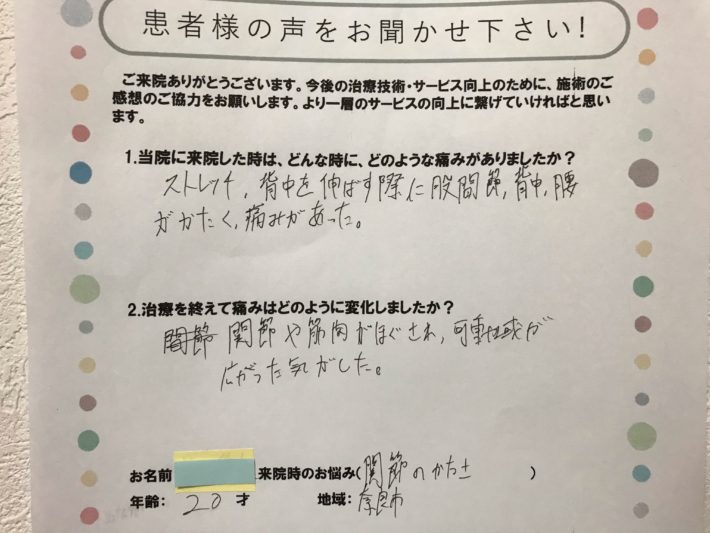 患者様の声をお聞かせ下さい!
ご来院ありがとうございます。今後の治療技術・サービス向上のために、施術のご
感想のご協力をお願いします。より一層のサービスの向上に繋げていければと思い
ます。
1.当院に来院した時は、どんな時に、どのような痛みがありましたか?
ストレッチ、背中を伸ばす際に股間節、背中、腰
がかたく、痛みがあった。
2.治療を終えて痛みはどのように変化しましたか?
関節や筋肉がほぐされ、可動域が
広がった気がした。
お名前 来院時のお悩み(関節のかたさ )
年齢: 20 才 地域: 奈良市